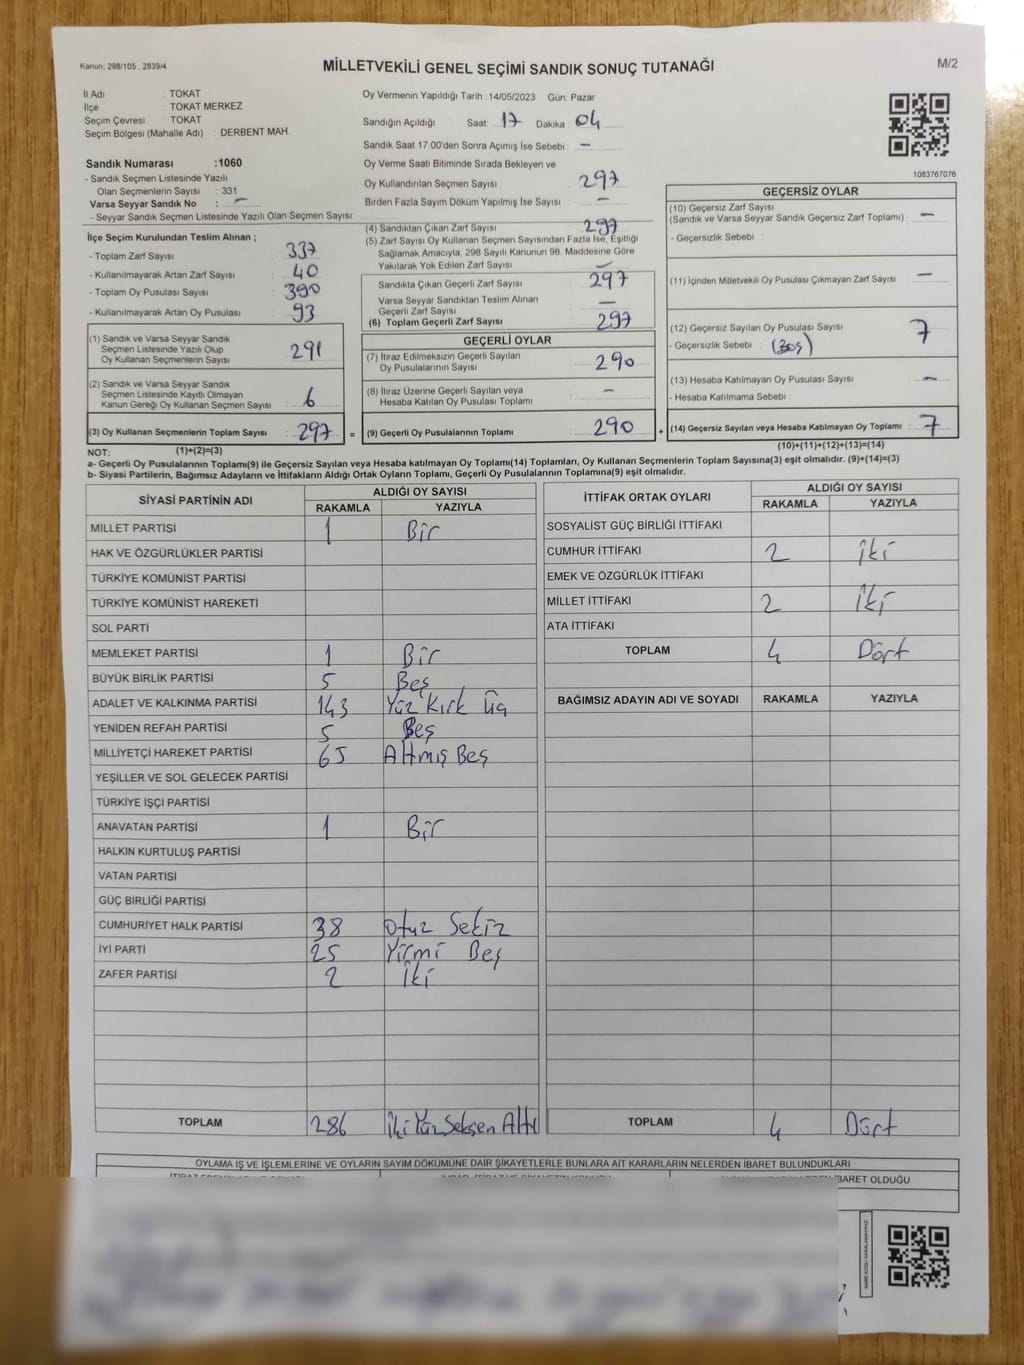 Kanun: 298/105 , 2839/4
MİLLETVEKİLİ GENEL SEÇİMİ SANDIK SONUÇ TUTANAĞI
M/2
İl Adı : TOKAT
İlçe : TOKAT MERKEZ
Seçim Çevresi : TOKAT
Seçim Bölgesi (Mahalle Adı) : DERBENT MAH.
Sandık Numarası :1060
- Sandık Seçmen Listesinde Yazılı
Olan Seçmenlerin Sayısı : 331
Varsa Seyyar Sandık No : –
- Seyyar Sandık Seçmen Listesinde Yazılı Olan Seçmen Sayısı:
Oy Vermenin Yapıldığı Tarih :14/05/2023 Gün: Pazar
Sandığın Açıldığı Saat: 17 Dakika: 04
Sandık Saat 17.00'den Sonra Açılmış İse Sebebi : –
Oy Verme Saati Bitiminde Sırada Bekleyen ve
Oy Kullandırılan Seçmen Sayısı : 297
Birden Fazla Sayım Döküm Yapılmış İse Sayısı : –
1083767076
İlçe Seçim Kurulundan Teslim Alınan ;
- Toplam Zarf Sayısı : 337
- Kullanılmayarak Artan Zarf Sayısı : 40
- Toplam Oy Pusulası Sayısı : 390
- Kullanılmayarak Artan Oy Pusulası : 93
(1) Sandık ve Varsa Seyyar Sandık
Seçmen Listesinde Yazılı Olup
Oy Kullanan Seçmenlerin Sayısı : 291
(2) Sandık ve Varsa Seyyar Sandık
Seçmen Listesinde Kayıtlı Olmayan
Kanun Gereği Oy Kullanan Seçmen Sayısı : 6
(3) Oy Kullanan Seçmenlerin Toplam Sayısı : 297 =
(1)+(2)=(3)
(4) Sandıktan Çıkan Zarf Sayısı : 297
(5) Zarf Sayısı Oy Kullanan Seçmen Sayısından Fazla İse, Eşitliği
Sağlamak Amacıyla, 298 Sayılı Kanunun 98. Maddesine Göre
Yakılarak Yok Edilen Zarf Sayısı : –
Sandıkta Çıkan Geçerli Zarf Sayısı : 297
Varsa Seyyar Sandıktan Teslim Alınan
Geçerli Zarf Sayısı : –
(6) Toplam Geçerli Zarf Sayısı : 297
GEÇERLİ OYLAR
(7) İtiraz Edilmeksizin Geçerli Sayılan
Oy Pusulalarının Sayısı : 290
(8) İtiraz Üzerine Geçerli Sayılan veya
Hesaba Katılan Oy Pusulası Toplamı : –
(9) Geçerli Oy Pusulalarının Toplamı : 290 +
GEÇERSİZ OYLAR
(10) Geçersiz Zarf Sayısı
(Sandık ve Varsa Seyyar Sandık Geçersiz Zarf Toplamı) : –
- Geçersizlik Sebebi :
(11) İçinden Milletvekili Oy Pusulası Çıkmayan Zarf Sayısı : –
(12) Geçersiz Sayılan Oy Pusulası Sayısı : 7
- Geçersizlik Sebebi : (Boş)
(13) Hesaba Katılmayan Oy Pusulası Sayısı : –
- Hesaba Katılmama Sebebi :
(14) Geçersiz Sayılan veya Hesaba Katılmayan Oy Toplamı : 7
(10)+(11)+(12)+(13)=(14)
NOT:
a- Geçerli Oy Pusulalarının Toplamı(9) ile Geçersiz Sayılan veya Hesaba katılmayan Oy Toplamı(14) Toplamları, Oy Kullanan Seçmenlerin Toplam Sayısına(3) eşit olmalıdır. (9)+(14)=(3)
b- Siyasi Partilerin, Bağımsız Adayların ve İttifakların Aldığı Ortak Oyların Toplamı, Geçerli Oy Pusulalarının Toplamına(9) eşit olmalıdır.
SİYASİ PARTİNİN ADI ALDIĞI OY SAYISI
RAKAMLA YAZIYLA
MİLLET PARTİSİ 1 Bir
HAK VE ÖZGÜRLÜKLER PARTİSİ
TÜRKİYE KOMÜNİST PARTİSİ
TÜRKİYE KOMÜNİST HAREKETİ
SOL PARTİ
MEMLEKET PARTİSİ 1 Bir
BÜYÜK BİRLİK PARTİSİ 5 Beş
ADALET VE KALKINMA PARTİSİ 143 Yüz Kırk Üç
YENİDEN REFAH PARTİSİ 5 Beş
MİLLİYETÇİ HAREKET PARTİSİ 65 Altmış Beş
YEŞİLLER VE SOL GELECEK PARTİSİ
TÜRKİYE İŞÇİ PARTİSİ
ANAVATAN PARTİSİ 1 Bir
HALKIN KURTULUŞ PARTİSİ
VATAN PARTİSİ
GÜÇ BİRLİĞİ PARTİSİ
CUMHURİYET HALK PARTİSİ 38 Otuz Sekiz
İYİ PARTİ 25 Yirmi Beş
ZAFER PARTİSİ 2 İki
TOPLAM 286 İki Yüz Seksen Altı
İTTİFAK ORTAK OYLARI ALDIĞI OY SAYISI
RAKAMLA YAZIYLA
SOSYALİST GÜÇ BİRLİĞİ İTTİFAKI
CUMHUR İTTİFAKI 2 İki
EMEK VE ÖZGÜRLÜK İTTİFAKI
MİLLET İTTİFAKI 2 İki
ATA İTTİFAKI
TOPLAM 4 Dört
BAĞIMSIZ ADAYIN ADI VE SOYADI RAKAMLA YAZIYLA
TOPLAM 4 Dört
OYLAMA İŞ VE İŞLEMLERİNE VE OYLARIN SAYIM DÖKÜMÜNE DAİR ŞİKAYETLERLE BUNLARA AİT KARARLARIN NELERDEN İBARET BULUNDUKLARI
İBARET OLDUĞU